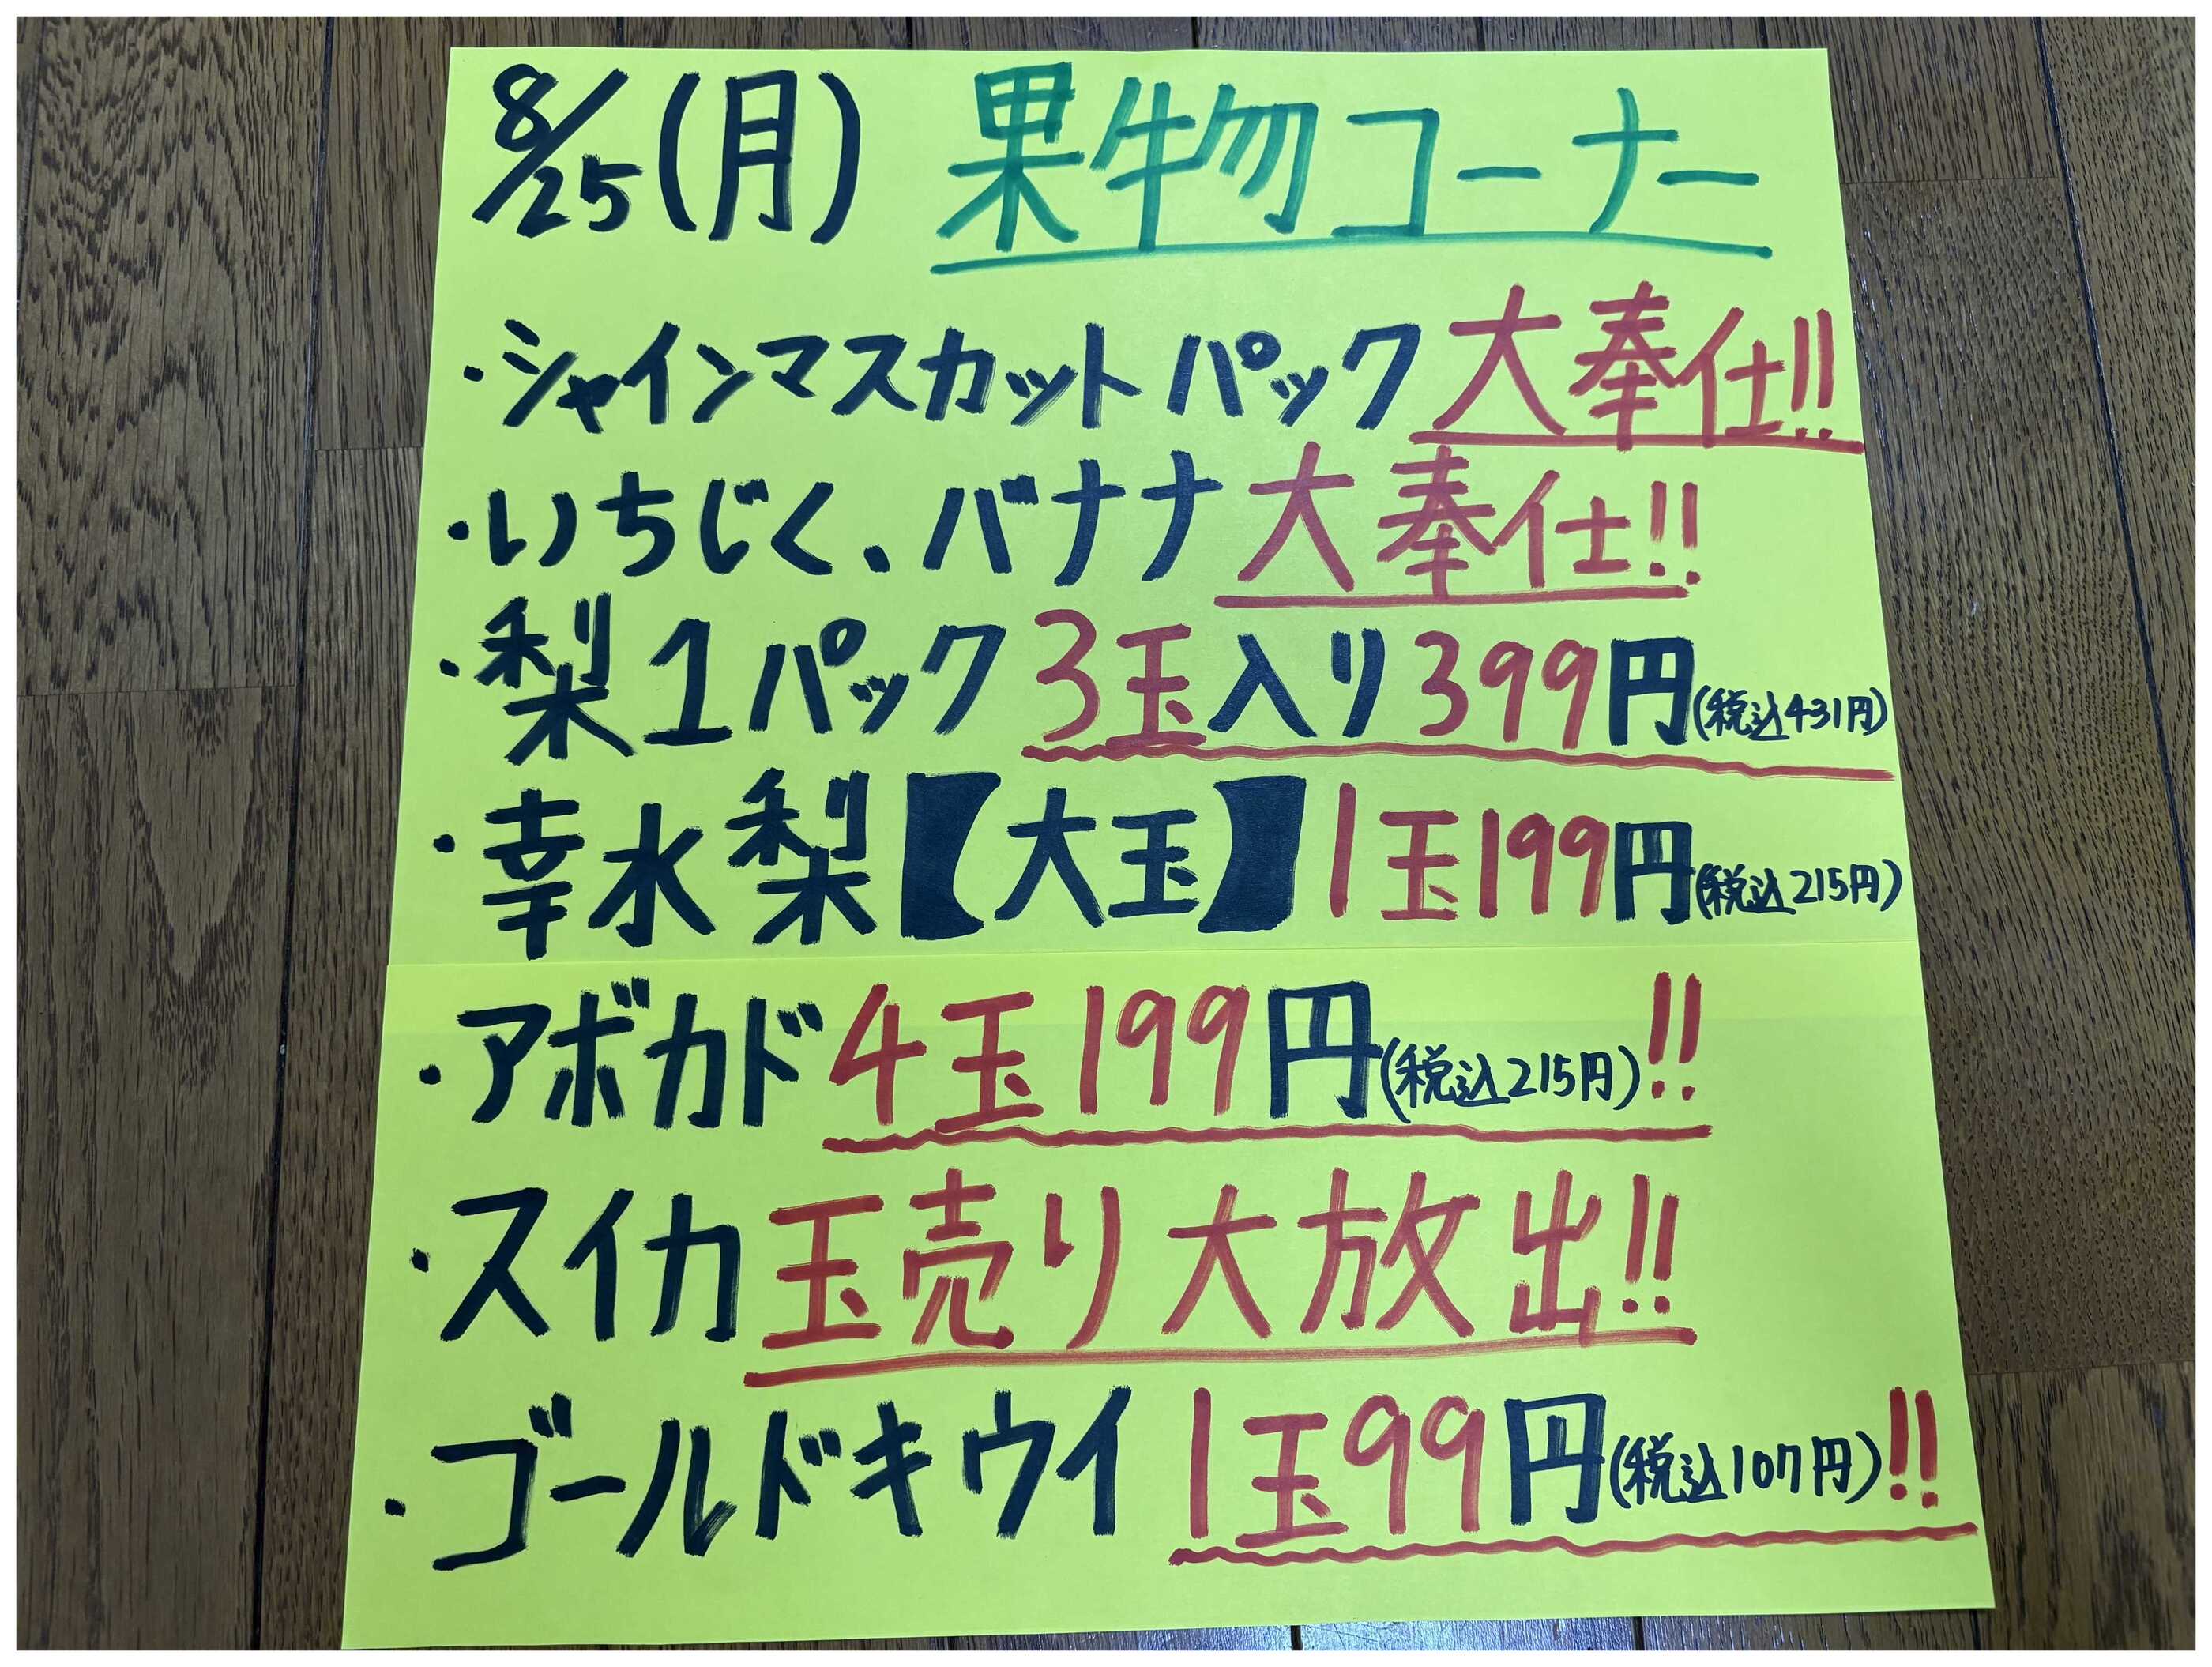 8/25(月) 果物コーナー
・シャインマスカットパック大奉仕!!
・いちじく、バナナ大奉仕!!
・梨1パック3玉入り399円(税込431円)
・幸水梨【大玉】1玉199円(税込215円)
・アボカド4玉199円(税込215円)!!
・スイカ玉売り大放出!!
・ゴールドキウイ1玉99円(税込107円)!!